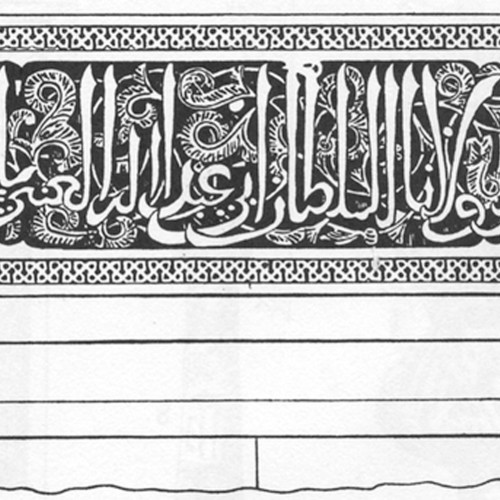 لمولانا السلطان ابي عبد الله الغني